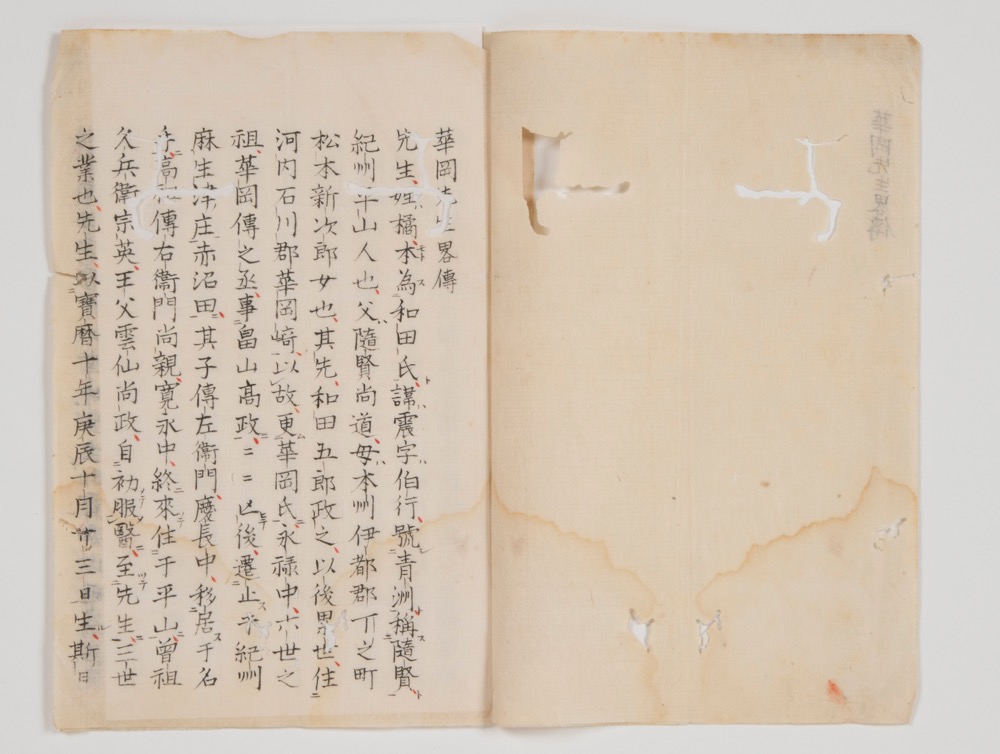 華岡先生畧傳
先生、姓橘、本為和田氏、諱震、字伯行、號青洲、稱隨賢、
紀州平山人也、父隨賢尚道、母本州伊都郡丁之町
松本新次郎女也、其先、和田五郎政之、以後累世、住
河内石川郡華岡﨑、以故、更華岡氏、永禄中、六世之
祖、華岡傳之丞、事畠山高政、〻〻亡後、遷止于紀州
麻生津庄赤沼田、其子傳左衞門、慶長中、移居于名
手、高祖傳右衞門尚親、寛永中、終來住于平山、曽祖
久兵衞宗英、王父雲仙尚政、自初服醫、至先生、三世
之業也、先生、以寶暦十年庚辰十月廿三日生、斯日
華岡先生畧傳